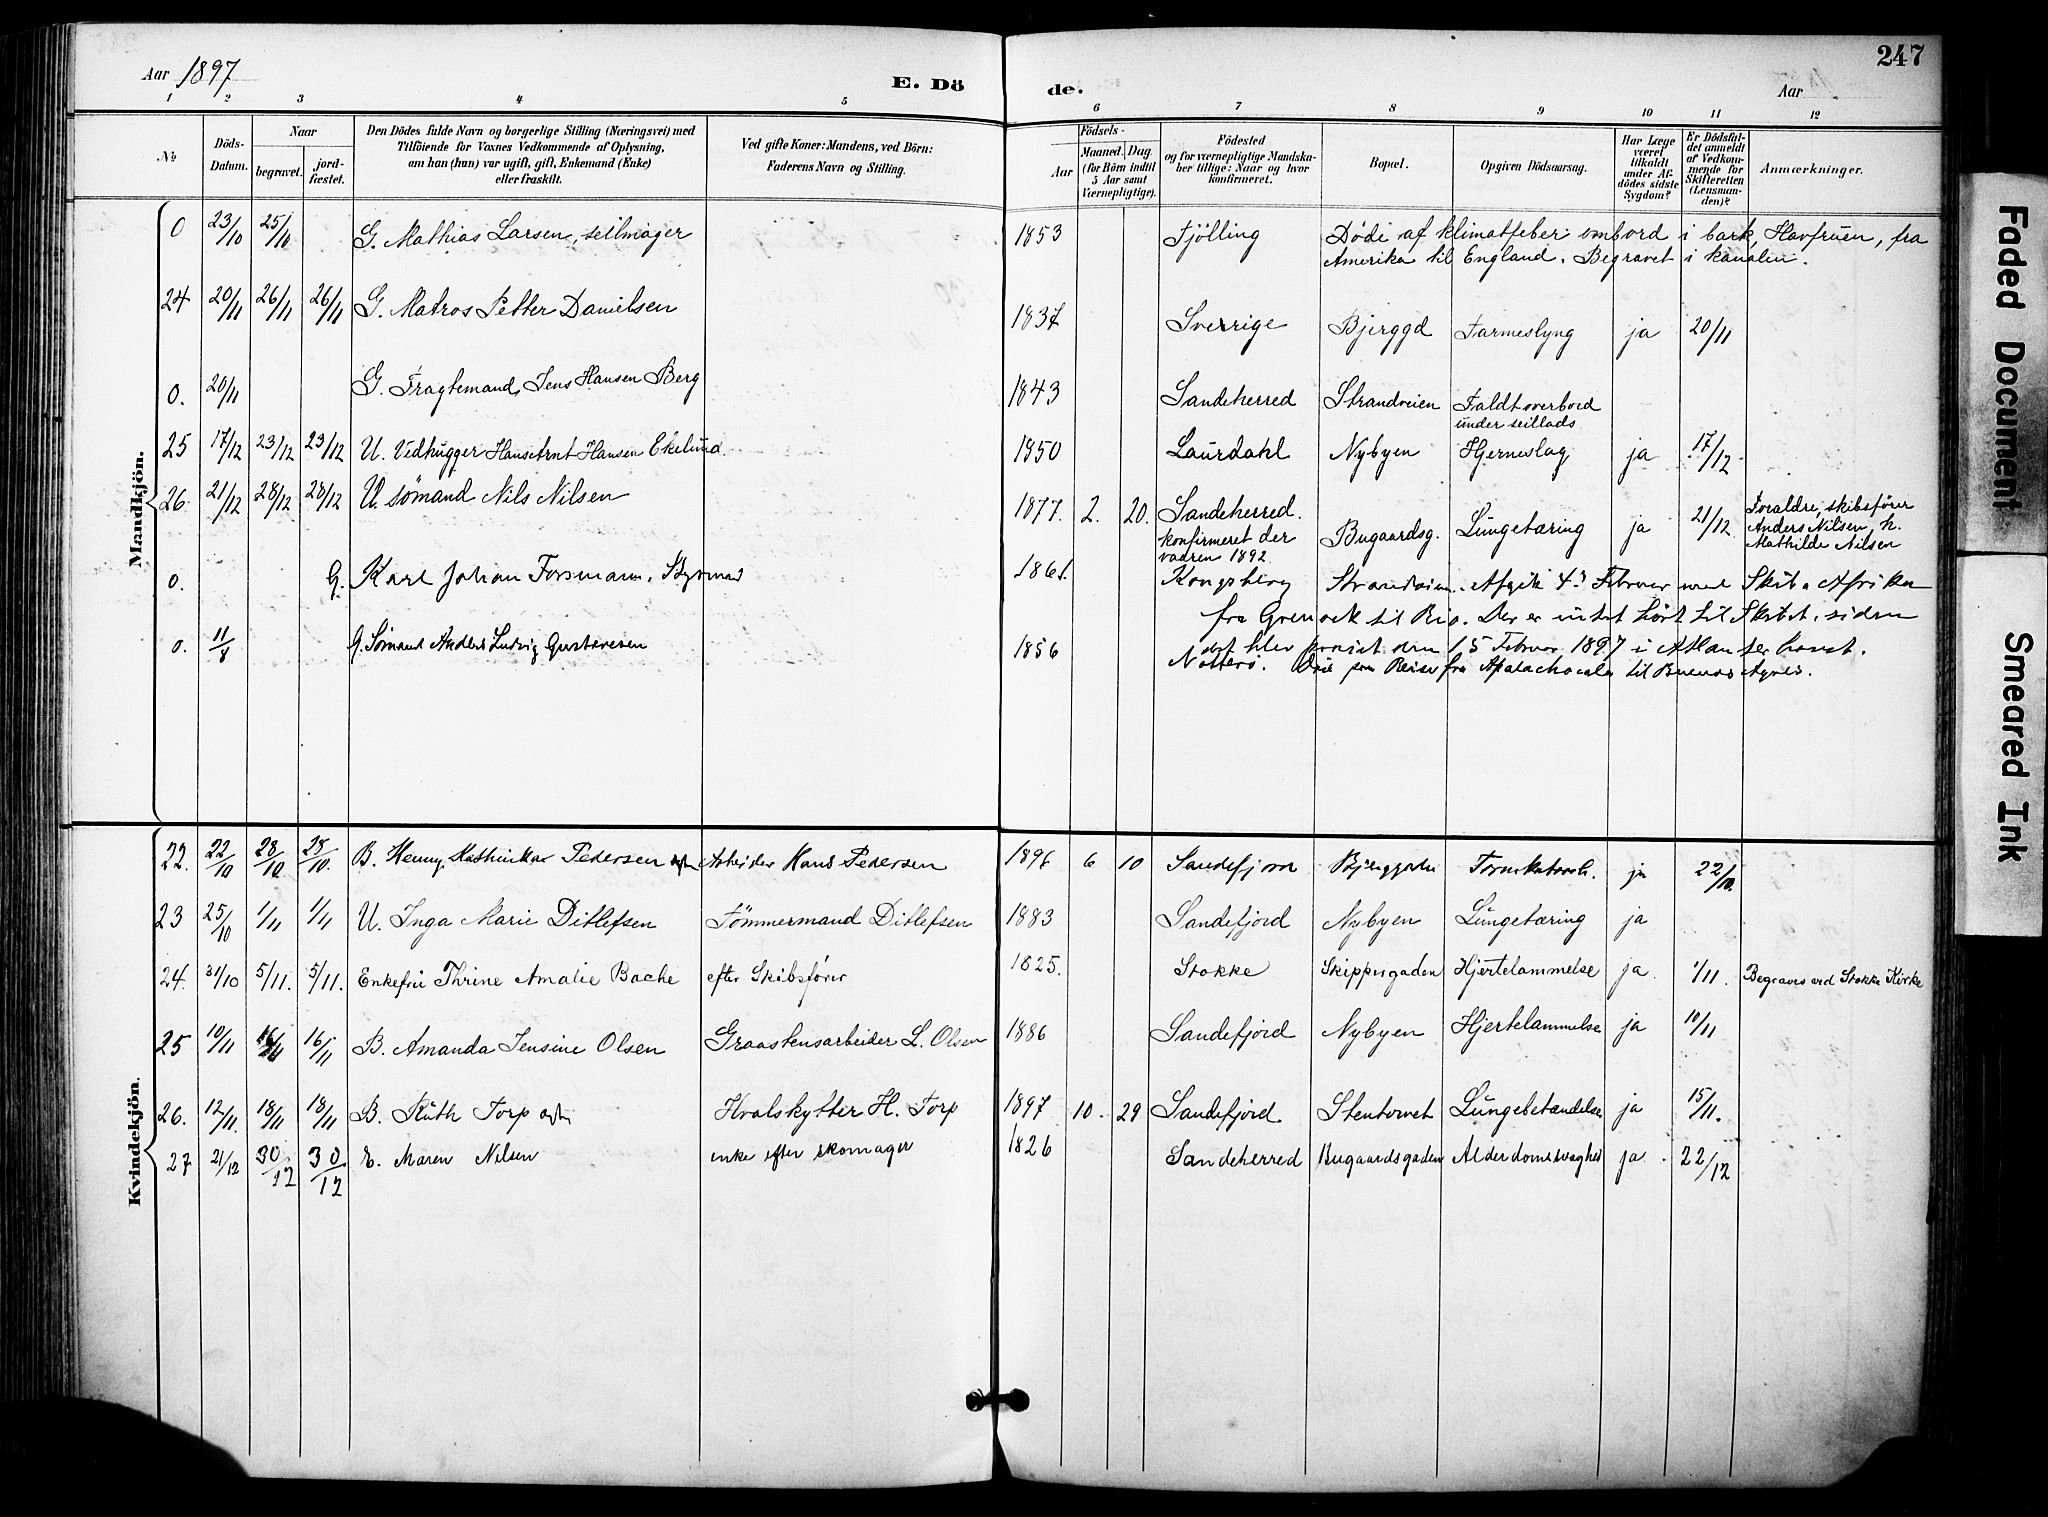 Aar 1897
E. Dö de.
Aar
247
1 2 3 4 5 6 7 8 9 10 11 12
No
Döds-Datum.
Naar
begravet.
jord-fæstet.
Den Dödes fulde Navn og borgerlige Stilling (Næringsvei) med
Tilföiende for Voxnes Vedkommende af Oplysning,
om han (hun) var ugift, gift, Enkemand (Enke)
eller fraskilt.
Ved gifte Koner: Mandens, ved Börn:
Faderens Navn og Stilling.
Födsels-
Aar
Maaned. Dag.
(for Börn indtil
5 Aar samt
Værnepligtige).
Födested
og for værnepligtige Mandska-
ber tillige: Naar og hvor
konfirmeret.
Bopæl.
Opgiven Dödsaarsag.
Har Læge
været
tilkaldt
under Af-
dödes sidste
Sygdom?
Er Dödsfal-
det anmeldt
af Vedkom-
mende for
Skifteretten
(Lensman-
den)?
Anmærkninger.
Mandkjön.
0 23/10 25/10 G. Mathias Larsen, seilmager 1853 Fjölling Döde af klimatfeber ombord i bark, Havfruen, fra
Amerika til England. Begravet i kanalen.
24 20/11 26/11 26/11 G. Matros Petter Danielsen 1837 Sverrige Bjerggd Tarmeslyng ja 20/11
0. 20/11 G. Fragtemand, Jens Hansen Berg 1843 Sandeherred Strandveien Faldt overbord
under seillads
25 17/12 23/12 23/12 U. Vedhugger Hans Arnt Hansen Ekelund 1850 Laurdahl Nybyen Hjerneslag ja 17/12
26 21/12 28/12 28/12 U. sömand Nils Nilsen 1877. 2. 20. Sandeherred. Bugaardsg. Lungetæring ja 21/12 Foraldre, skibsförer
konfirmeret der Anders Nilsen, h.
vaaren 1892 Mathilde Nilsen
0. G. Karl Johan Forsmann, Styrmand 1861. Kongsberg Strandveien. Afgik 4de Februar med Skib. Afrika
fra Grenock til Rio. Der er intet hört til Skibet, siden
det blev praiet den 15 Februar 1897 i Atlanterhavet.
0. 11/8 G. Sömand Anders Ludvig Gustavesen 1856 Nötterö. Död paa Reise fra Apalachocala til Buenos Ayres.
Kvindekjön.
22. 22/10 28/10 28/10. B. Henny Kathinka Pedersen Arbeider Hans Pedersen 1896 6 10 Sandefjord Bjerggaden ja 22/10.
23 25/10 1/11 1/11 U. Inga Marie Ditlefsen Tömmermand Ditlefsen 1883 Sandefjord Nybyen Lungetæring ja
24. 31/10 5/11. 5/11. Enkefru Thrine Amalie Bache efter Skibsförer 1825. Stokke Skippergaden Hjertelammelse ja. 1/11. Begraves ved Stokke Kirke
25 10/11 16/11 16/11 B. Amanda Jensine Olsen Graastensarbeider L. Olsen 1886 Sandefjord Nybyen Hjertelammelse ja 10/11
26. 12/11. 18/11 18/11 B. Ruth Torp Hvalskytter H. Torp 1897 10. 29 Sandefjord Stentorvet Lungebetændelse ja 15/11.
27 21/12 30/12 30/12 E. Maren Nilsen enke efter skomager 1826 Sandeherred Bugaardsgaden Alderdomssvaghed ja. 22/12
Faded Document
Smeared Ink